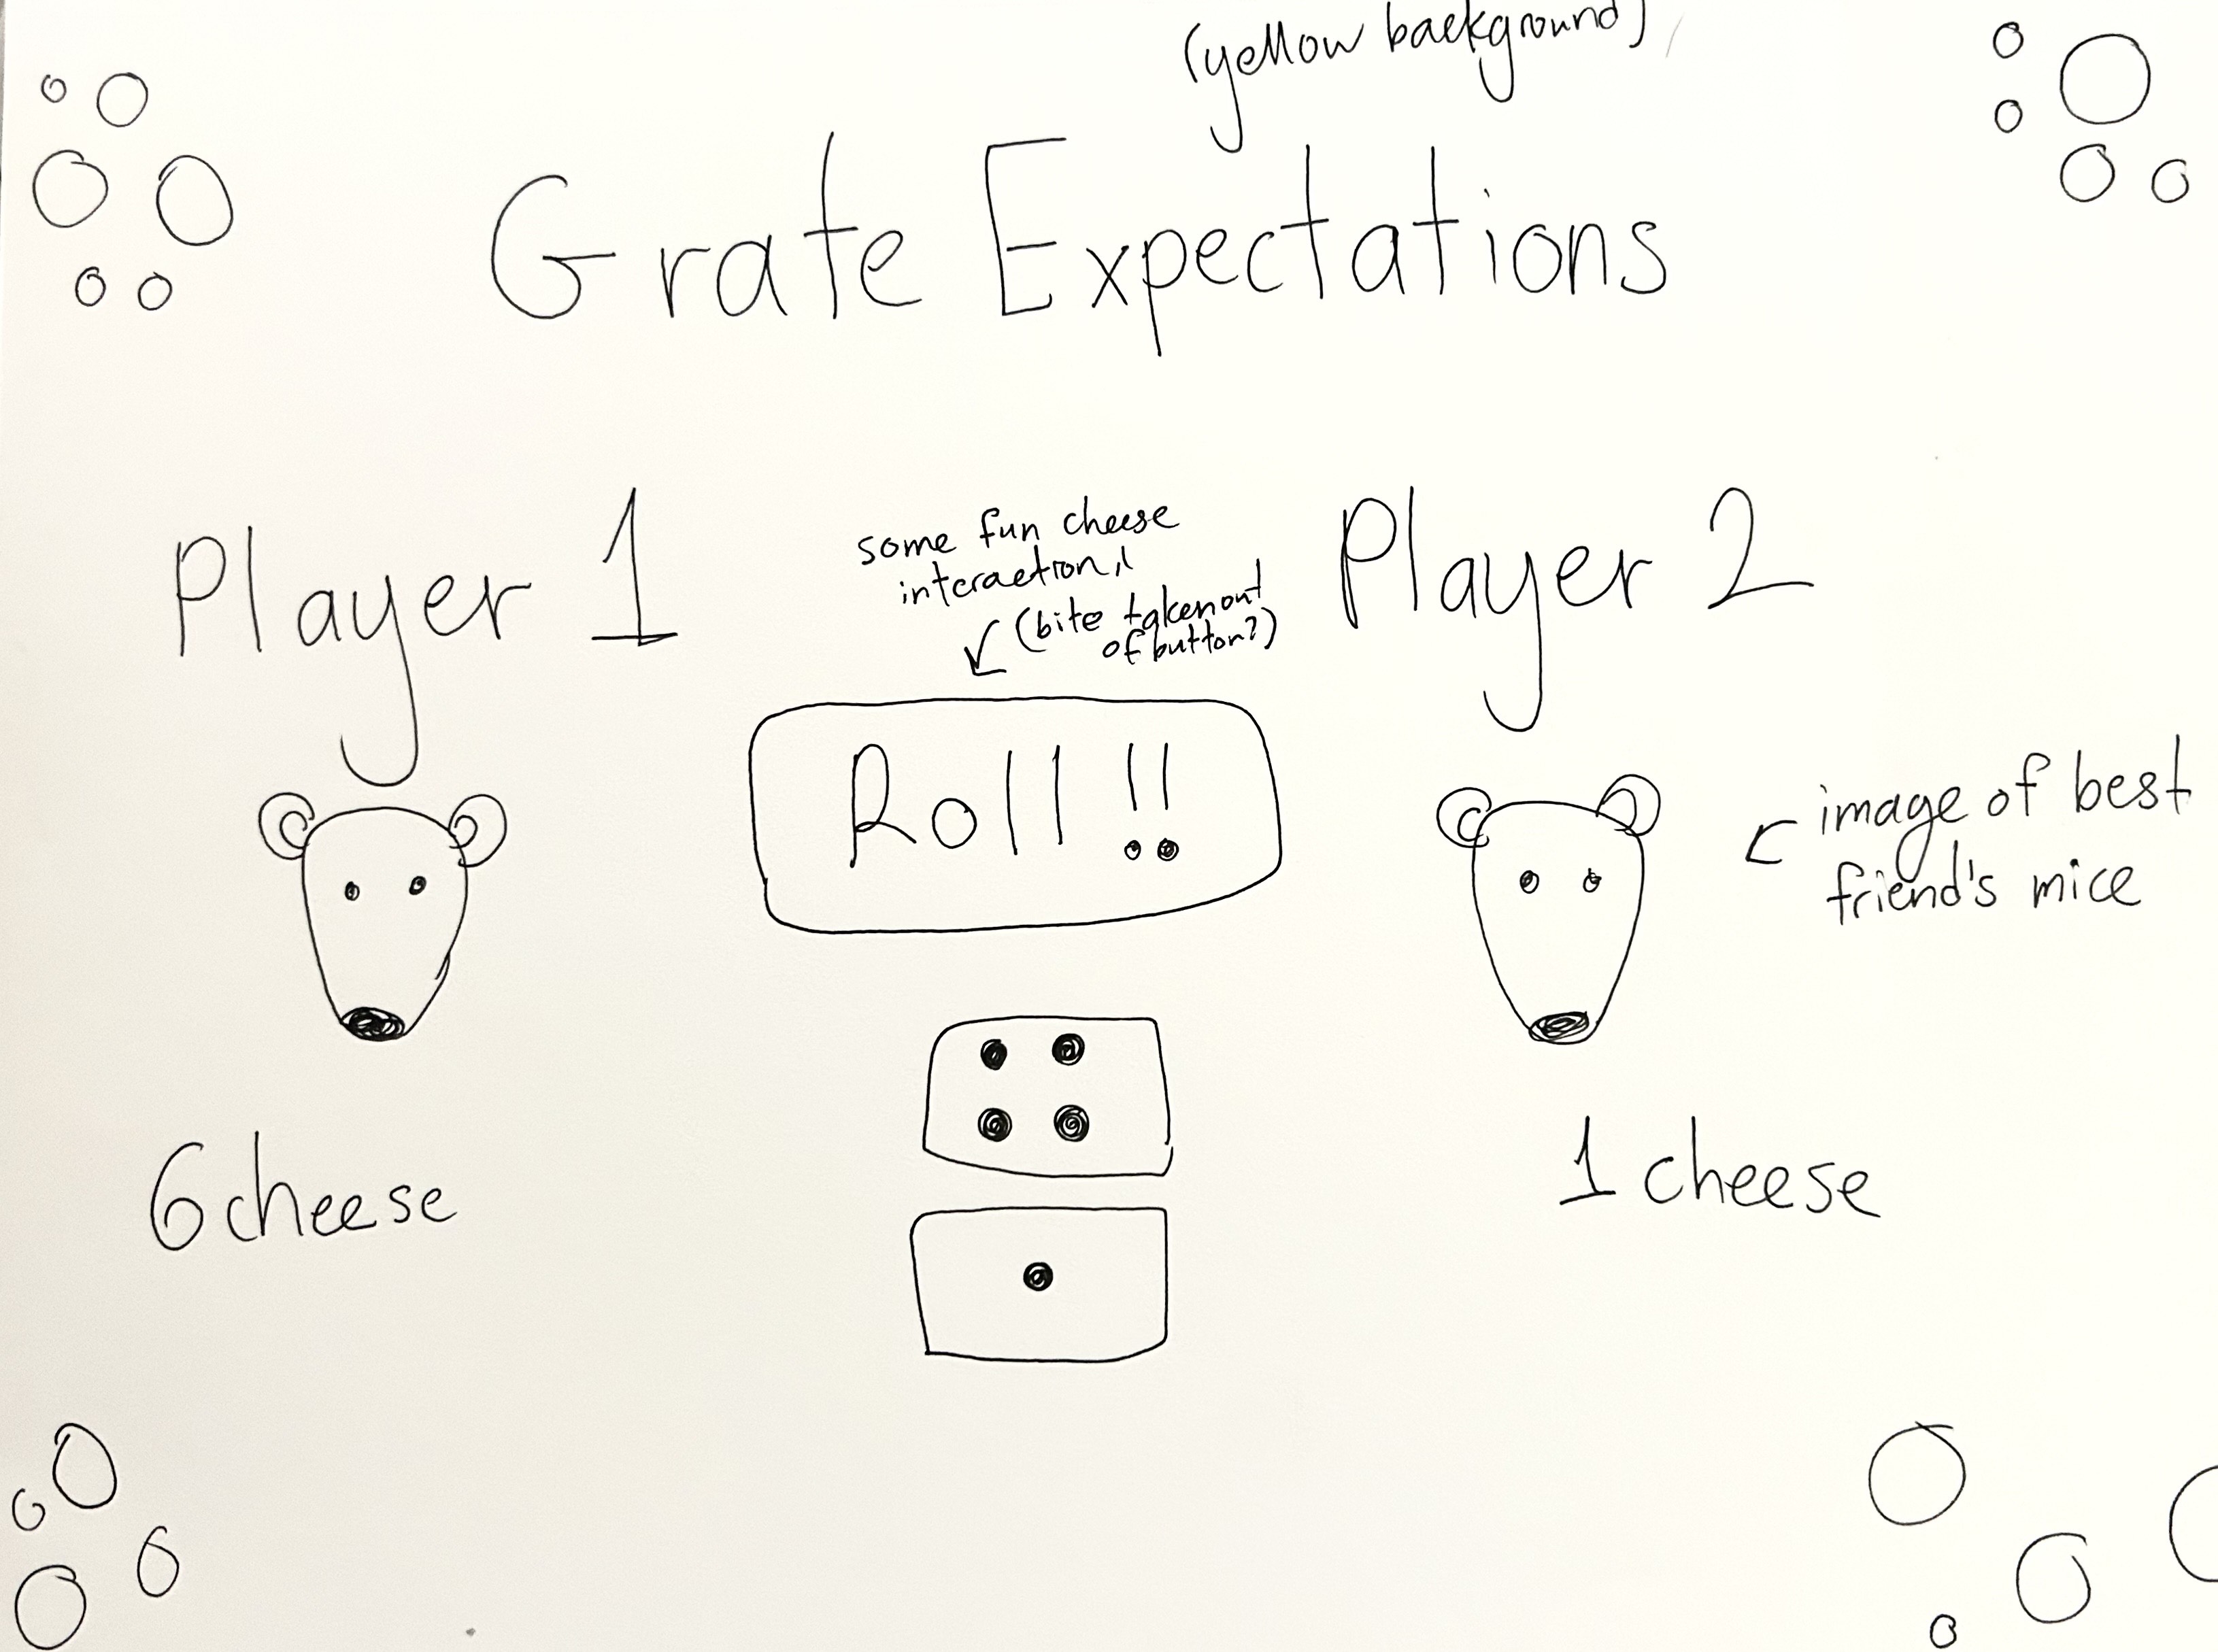 (yellow background)
Grate Expectations
Player 1
some fun cheese
interaction,
(bite taken out
of button?)
Player 2
Roll!!
image of best
friend's mice
6 cheese
1 cheese